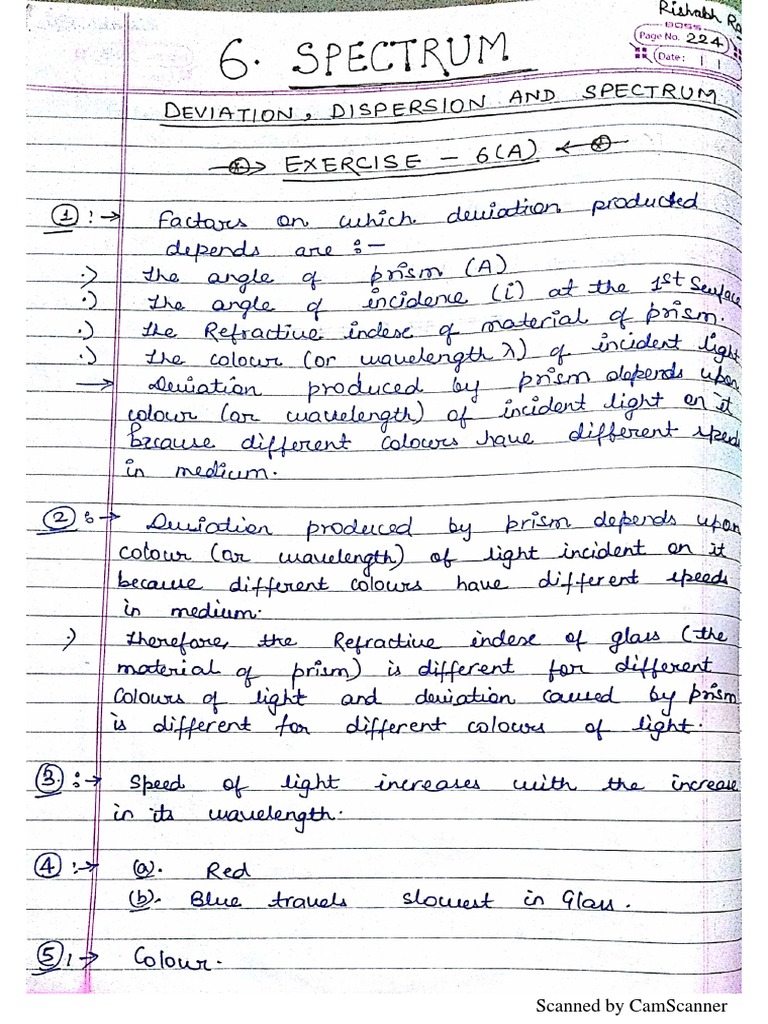 Rishabh Ra
BOSS
Page No. 224
Date: | |
6. SPECTRUM
DEVIATION, DISPERSION AND SPECTRUM
EXERCISE - 6(A)
① :→ Factors on which deviation producted
depends are :-
.) the angle of prism (A)
.) the angle of incidence (i) at the 1st Surface
.) the Refractive index of material of prism.
.) the colour (or wavelength λ) of incident light
→ Deviation produced by prism depends upon
colour (or wavelength) of incident light on it
because different colours have different speed
in medium.
② :→ Deviation produced by prism depends upon
colour (or wavelength) of light incident on it
because different colours have different speeds
in medium.
.) therefore, the Refractive index of glass (the
material of prism) is different for different
colours of light and deviation caused by prism
is different for different colours of light.
③ :→ speed of light increases with the increase
in its wavelength.
④ :→ (a). Red
(b). Blue travels slowest in Glass.
⑤ :→ Colour.
Scanned by CamScanner